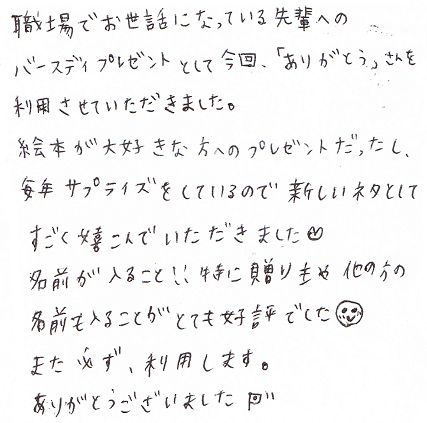 職場でお世話になっている先輩への
バースディプレゼントとして今回、「ありがとう」さんを
利用させていただきました。
絵本が大好きな方へのプレゼントだったし、
毎年サプライズをしているので新しいネタとして
すごく嬉こんでいただきました
名前が入ること!!特に贈り主や他の方の
名前も入ることがとても好評でした
また必ず、利用します。
ありがとうございました